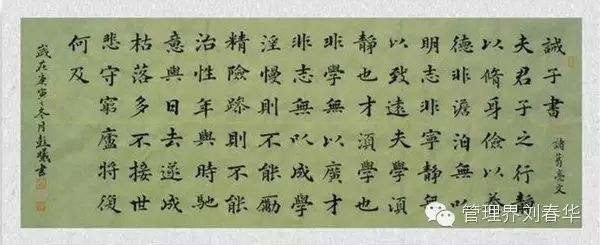 誡子書 諸葛亮文
夫君子之行靜
以脩身儉以養
德非澹泊無以
明志非寧靜無
以致遠夫學須
靜也才須學也
非學無以廣才
非志無以成學
淫慢則不能勵
精險躁則不能
治性年與時馳
意與日去遂成
枯落多不接世
悲守窮廬將復
何及
歲在庚寅之冬月 書
管理界刘春华